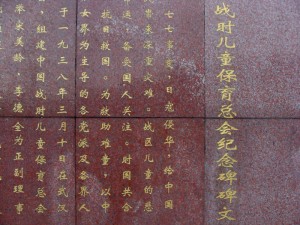 战时儿童保育总会纪念碑碑文
七七事变，日寇侵华，给中国
带来深重灾难。战区儿童的悲
惨遭遇，备受国人关注。时国共合
作抗日救国。为救助难童，以中
女界为主导的各党派及各界人
于一九三八年三月十日在武汉
组建中国战时儿童保育总会
宋美龄，李德全为正副理事